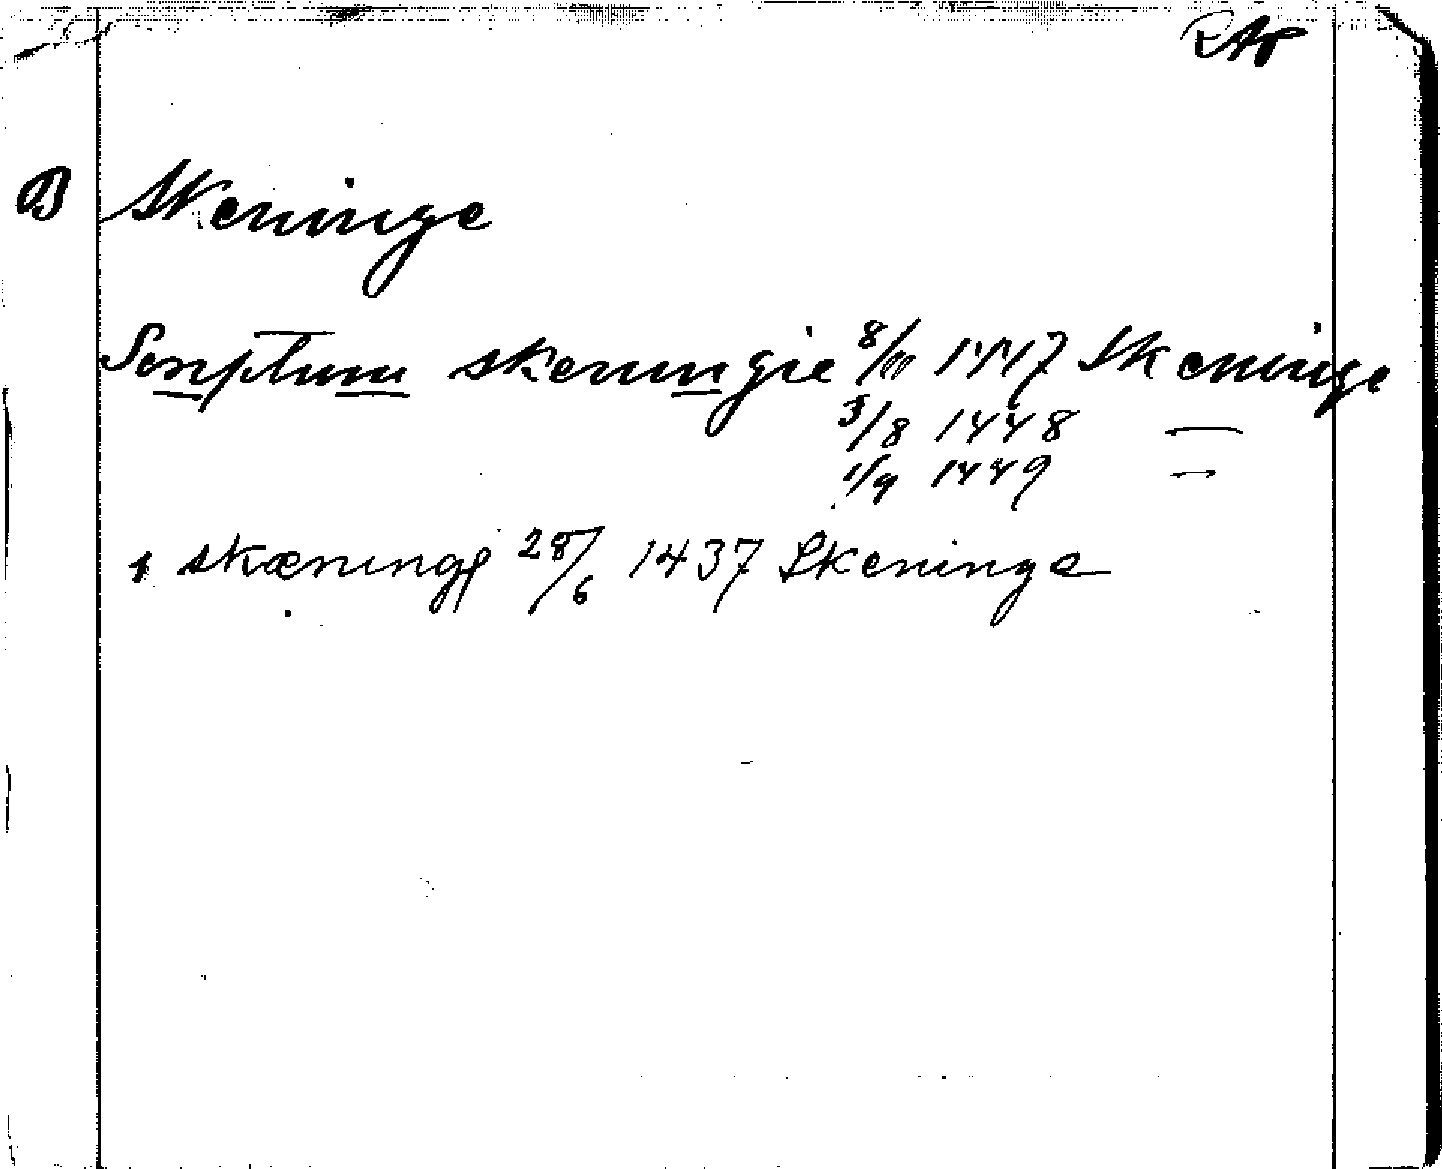 RAP
B Skeninge
Scriptum skeningie 8/10 1447 Skeninge
5/8 1448 —
1/9 1449 —
1 skæninge 28/6 1437 Skeninge